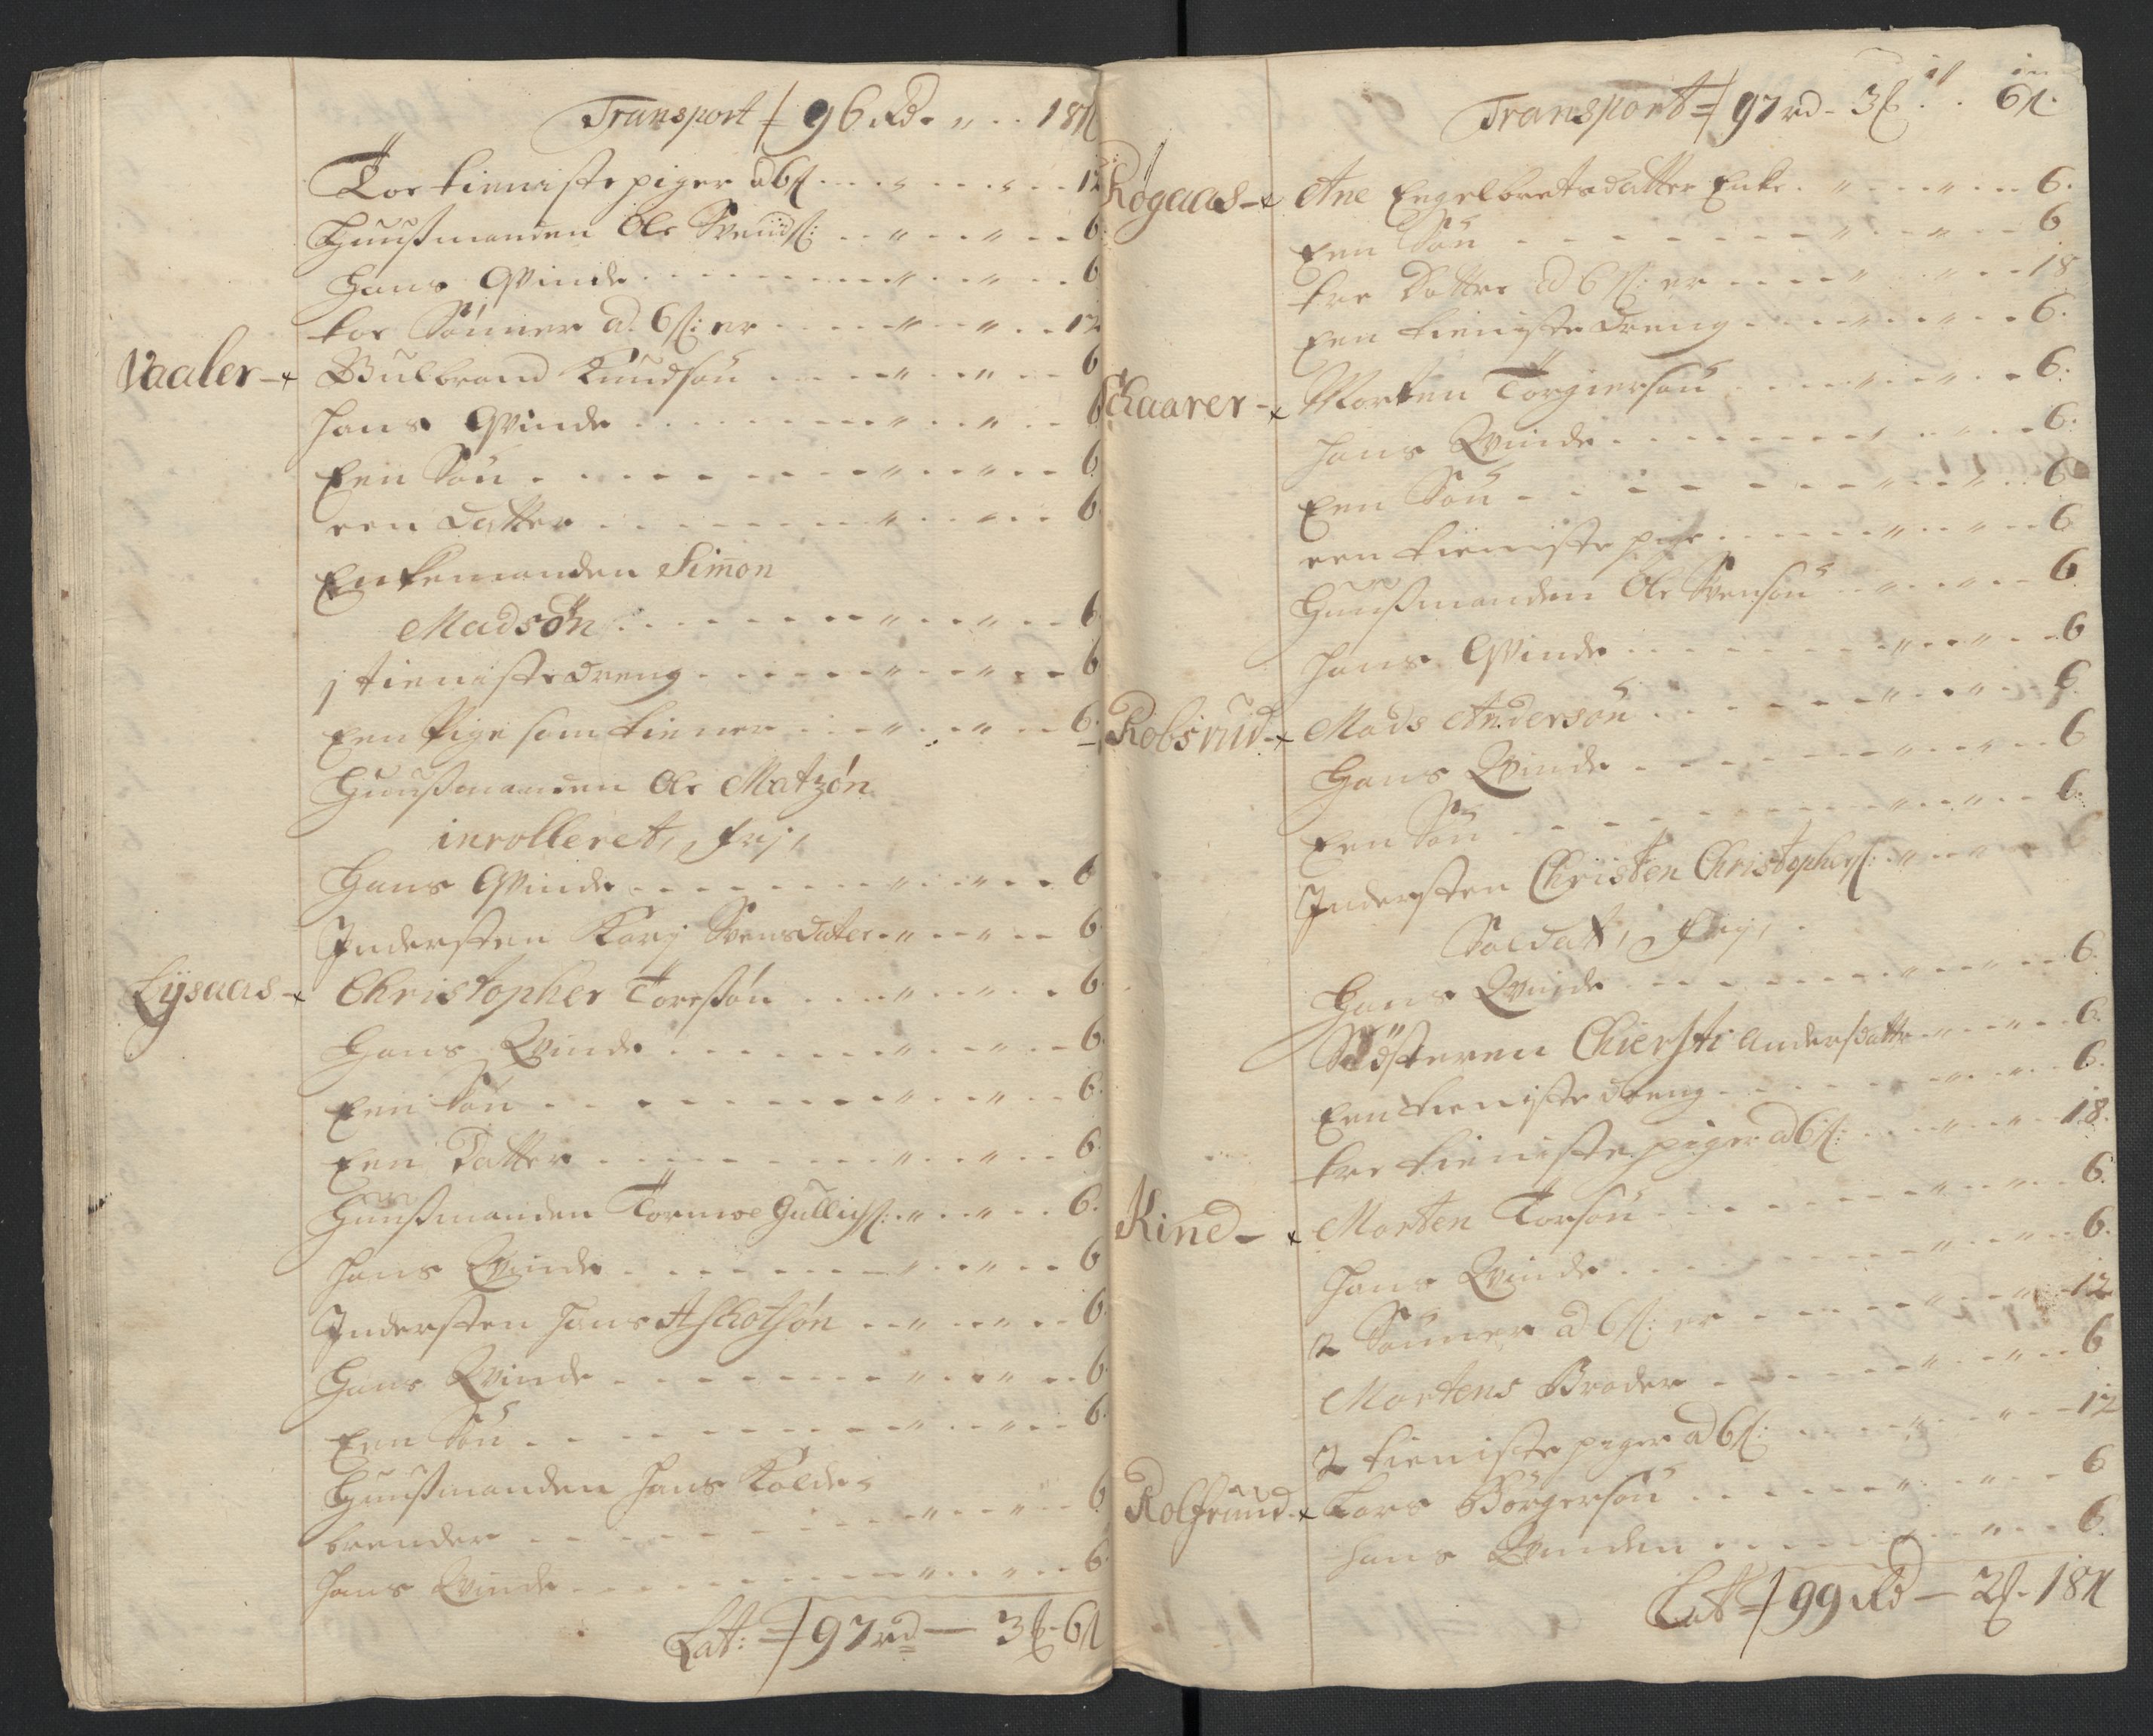 Transport = 96 Rd. „ . . 18ß
Toe tieniste piger a 6ß . . . 12
Huußmanden Ole Svendß: . . „ . . „ . . 6
Hans Qvinde . . . „ . . „ . . 6
toe Sönner a. 6ß: er . . . „ . . „ . . 12
Vaaler - Gulbrand Knudsøn . . . „ . . „ . . 6
hans Qvinde . . . „ . . „ . . 6
Een Søn . . . „ . . „ . . 6
een datter . . . „ . . „ . . 6
Enkemanden Simon
Madsøn . . . „ . . „ . . 6
1 tieniste dreng . . . „ . . „ . . 6
Een Pige som tiener . . . „ . . „ . . 6
Huußmanden Ole Matzøn
inrolleret, frj,
Hans Qvinde . . . „ . . „ . . 6
Indersten Karj Svensdater . „ . . „ . . 6
Lÿsaas - Christopher Toreßøn . . . „ . . „ . . 6
Hans Qvinde . . . „ . . „ . . 6
Een Søn . . . „ . . „ . . 6
Een Datter . . . „ . . „ . . 6
Huußmanden Tormoe Gullichß: . „ . . „ . . 6.
hans Qvinde . . . „ . . „ . . 6
Indersten Hans Askotsøn . . „ . . „ . . 6
Hans Qvinde . . . „ . . „ . . 6
Een Søn . . . „ . . „ . . 6
Huußmanden Hans Kolde-
brender . . . „ . . „ . . 6
hans Qvinde . . . „ . . „ . . 6
Lat: = 97 rd — 3 - 6ß
Transport = 97 rd - 3 . . 6ß.
Røgaas - Ane Engelbretsdatter Enke . „ . . „ . . 6.
Een Søn . . . „ . . „ . . 6
tre Dattre a 6ß: er . . . „ . . „ . . 18
Een tieniste dreng . . . „ . . „ . . 6.
Schaarer - Morten Torgiersøn . . . „ . . „ . . 6.
hans Qvinde . . . „ . . „ . . 6.
Een Søn . . . „ . . „ . . 6
een tieniste pige . . . „ . . „ . . 6
Huußmanden Ole Svensøn . . „ . . „ . . 6
hans Qvinde . . . „ . . „ . . 6
Robsrud - Mads Andersøn . . . „ . . „ . . 6.
Hans Qvinde . . . „ . . „ . . 6
Een Søn . . . „ . . „ . . 6.
Indersten Christen Christophersß: . „ . .
Soldatt, frj,
Hans Qvinde . . . „ . . „ . . 6.
Søsteren Chiersti Andersdatter . „ . . „ . . 6.
Een tieniste dreng . . . „ . . „ . . 6.
tre tieniste piger a 6ß: . . . „ . . „ . . 18.
Kind - Morten Torsøn . . . „ . . „ . . 6.
hans Qvinde . . . „ . . „ . . 6.
2 Sönner a 6ß: er . . . „ . . „ . . 12
Mortens Broder . . . „ . . „ . . 6
2 tieniste piger a 6ß: . . . „ . . „ . . 12
Rolfsruud - Lars Børgersøn . . . „ . . „ . . 6
hans Qvinden . . . „ . . „ . . 6.
Lat = 99 Rd — 2 - 18ß